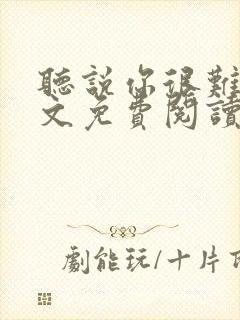 聽說你很難
文免費閱讀
劇能玩/十片